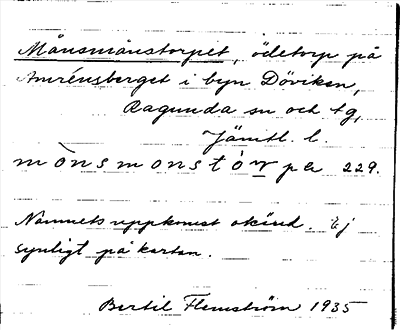 Månsmånstorpet, ödetorp på
Amrénsberget i byn Döviken,
Ragunda sn och tg,
Jämtl. l.
mònsmonstòrpe 229.
Namnets uppkomst okänd. Ej
synligt på kartan.
Bertil Flemström 1935